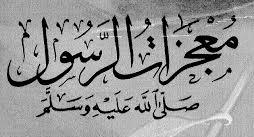 مُعْجِزَاتُ الرَّسُولِ
صَلَّى اللَّهُ عَلَيْهِ وَسَلَّمَ